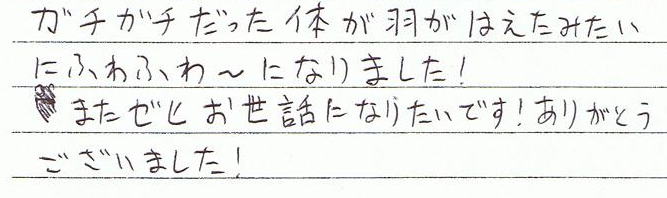 ガチガチだった体が羽がはえたみたい
にふわふわ～になりました!
またゼヒお世話になりたいです!ありがとう
ございました!